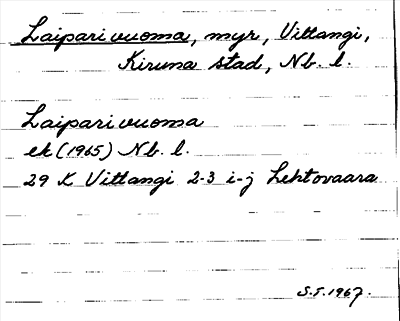 Laiparivuoma, myr, Vittangi,
Kiruna stad, Nb. l.
Laiparivuoma
ek (1965) Nb. l.
29 K Vittangi 2-3 i-j Lehtovaara
S.F. 1967.